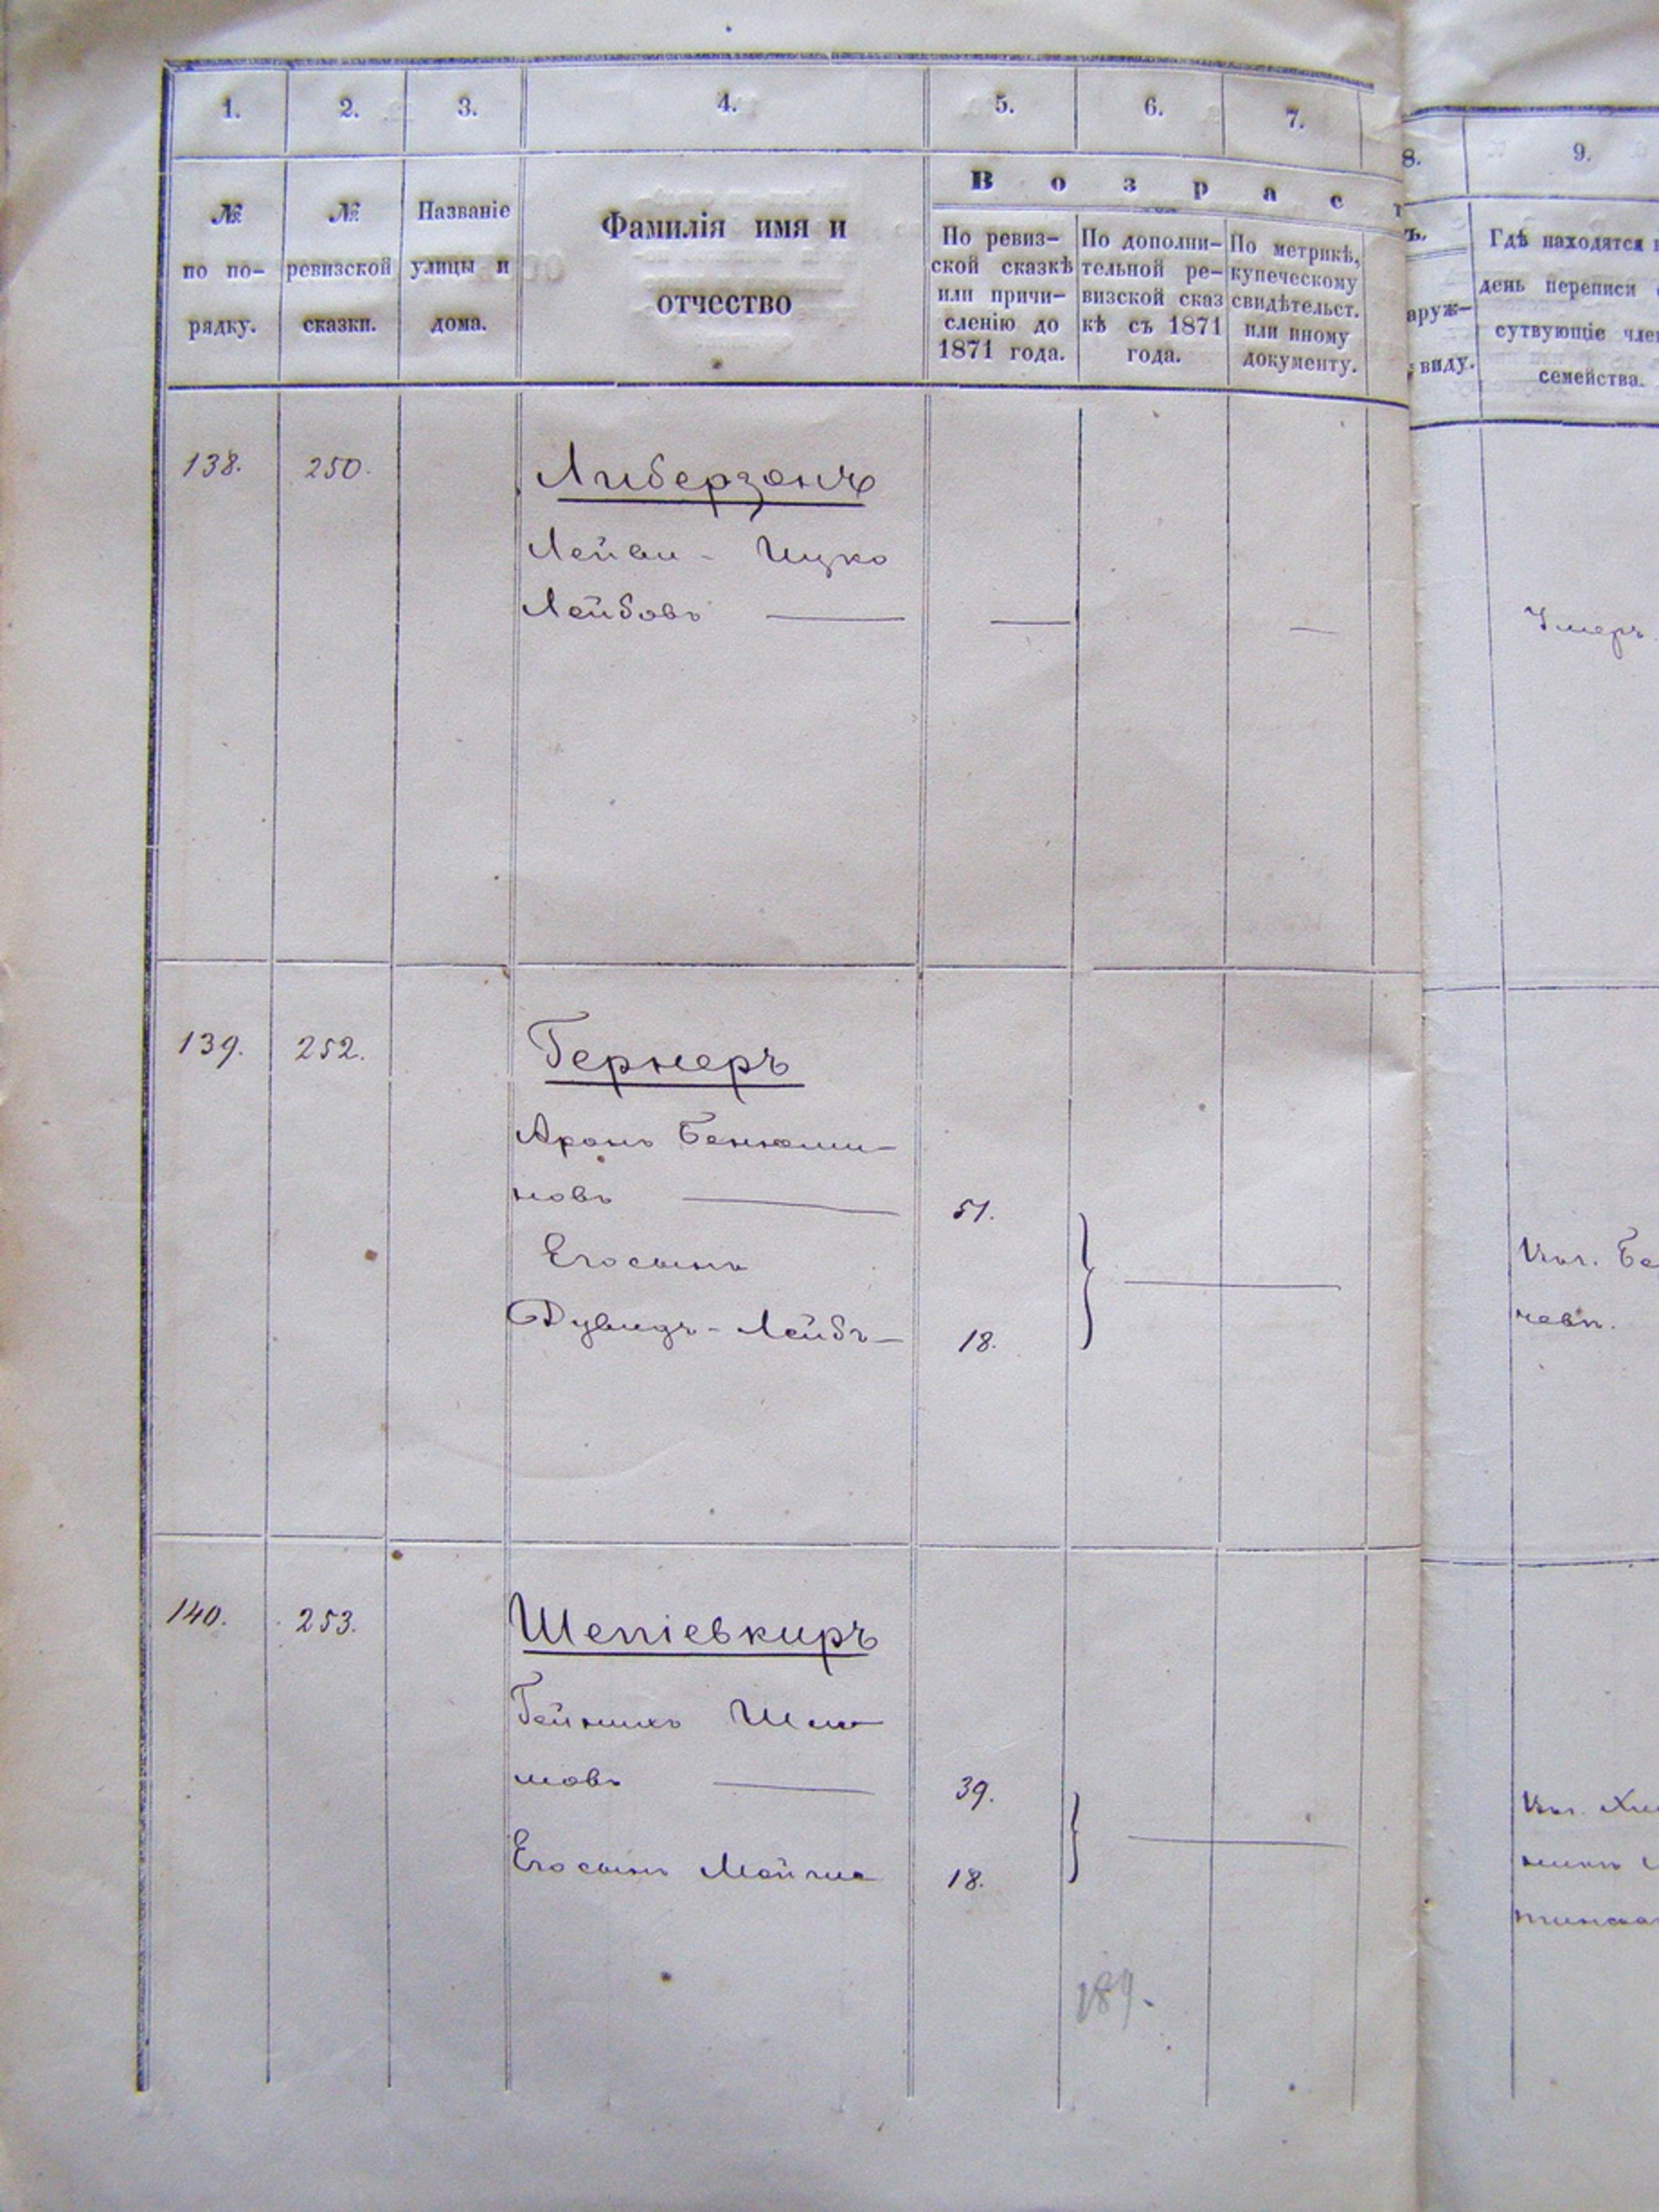 1. 2. 3. 4. 5. 6. 7. 8. 9.
№ по по- рядку.
№ ревизской сказки.
Названіе улицы и дома.
Фамилія имя и
отчество
В о з р а с т ъ.
По ревиз-
ской сказкѣ
или причи-
сленію до
1871 года.
По дополни-
тельной ре-
визской сказ
кѣ съ 1871
года.
По метрикѣ,
купеческому
свидѣтельст.
или иному
документу.
аруж-
виду.
Гдѣ находятся
день переписи
сутвующіе
семейства.
138. 250. Либерзонъ
Ицко
Лейбовъ — — —
Умеръ.
139. 252. Гернеръ
Аронъ Бенюми-
новъ — 51.
Его сынъ
Дувидъ-Лейбъ — 18.
140. 253. Шепіевкиръ
Гейнихъ
мовъ — 39.
Его сынъ 18.
189.